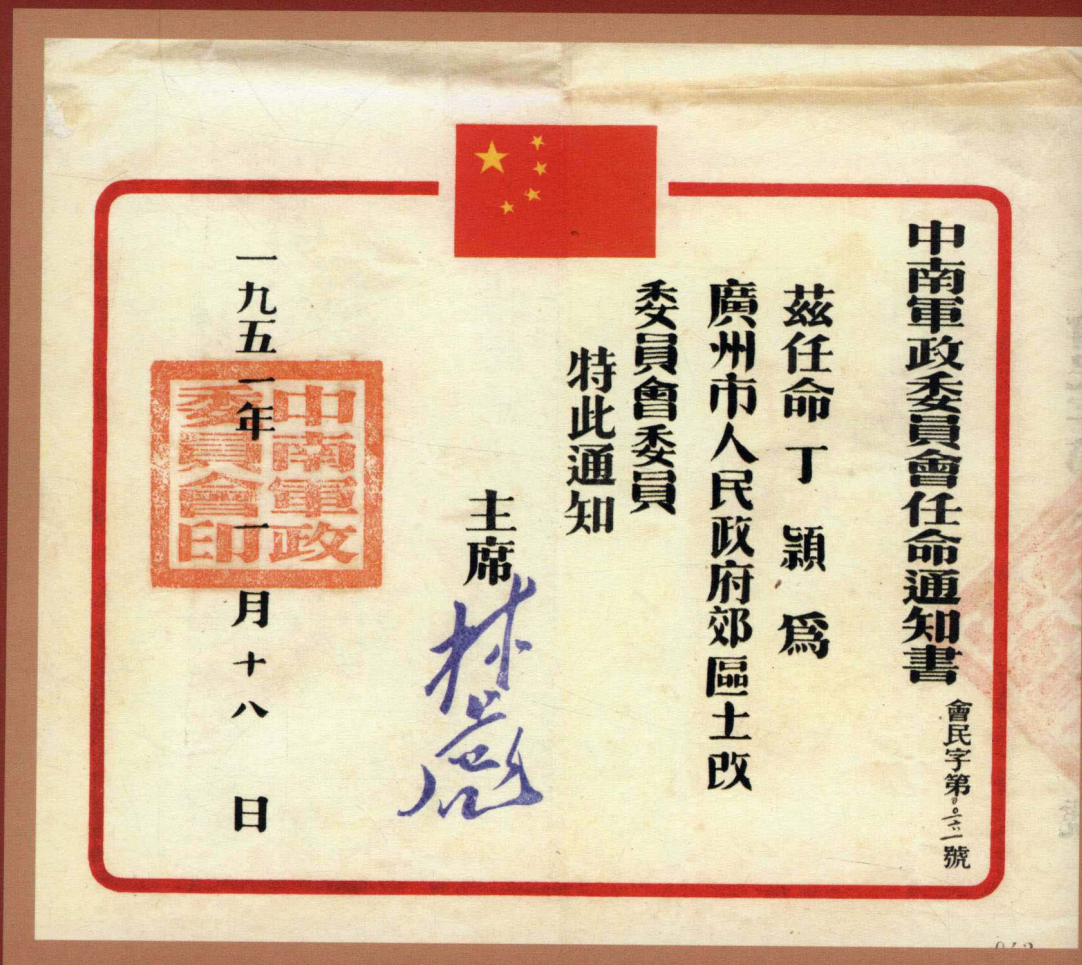 中南軍政委員會任命通知書
會民字第〇〇六二一號
茲任命丁穎爲
廣州市人民政府郊區土改
委員會委員
特此通知
主席
林彪
一九五一年一月十八日
中南軍政
委員會印